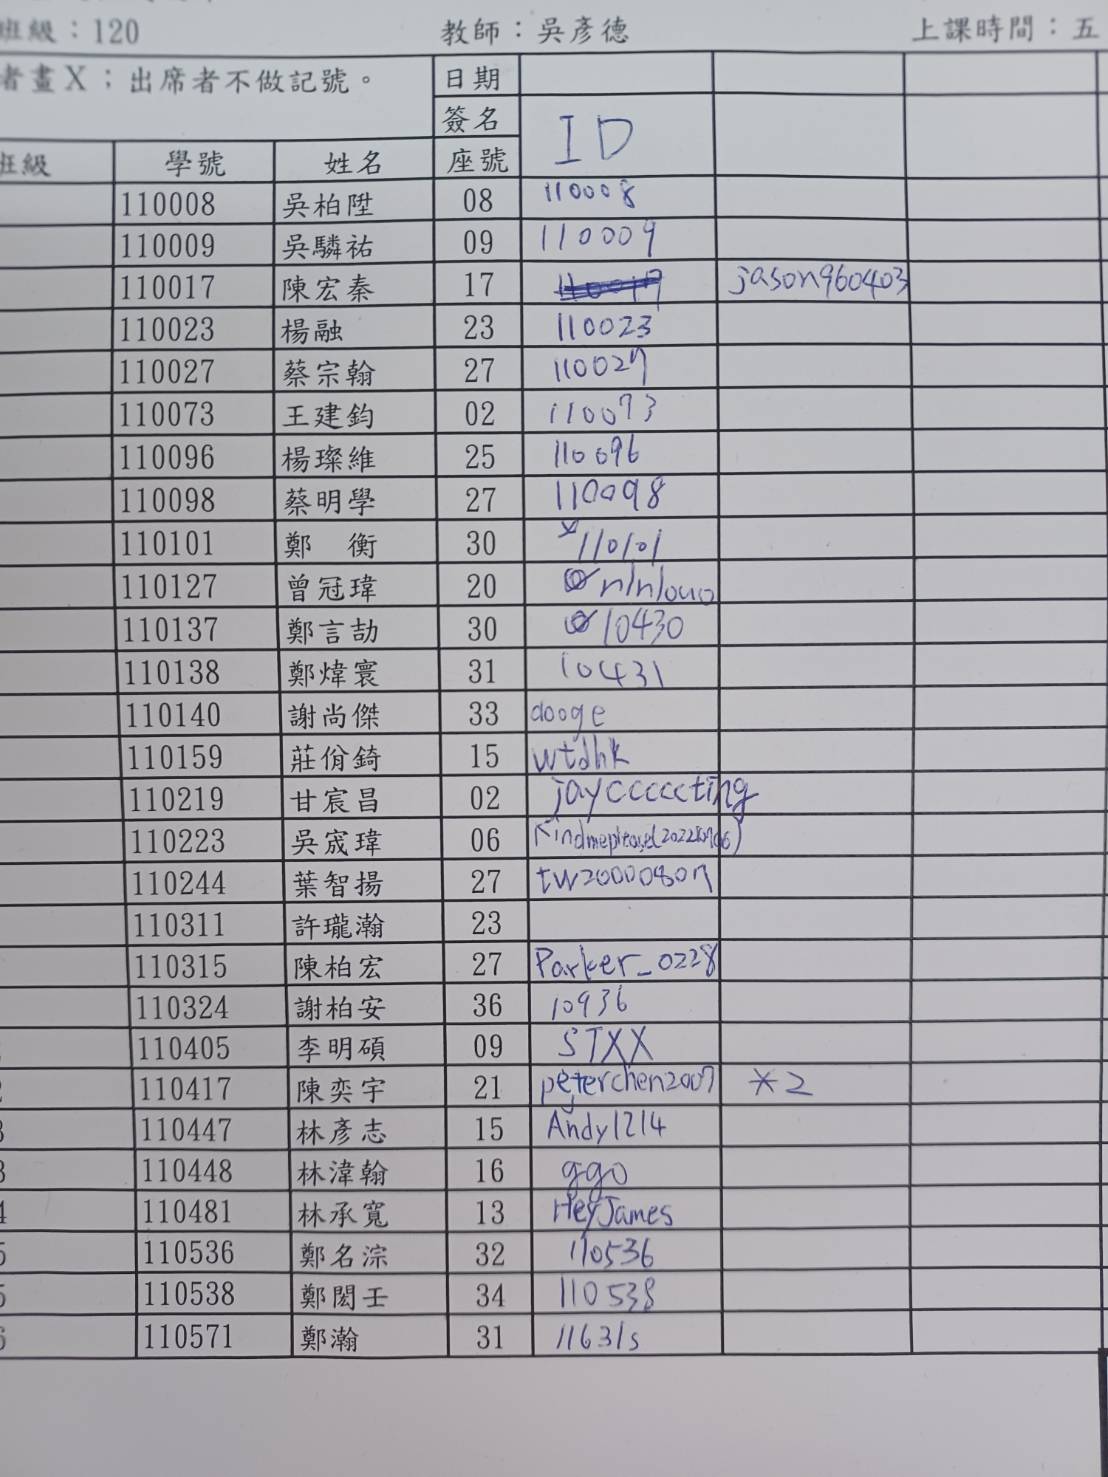 班級：120 教師：吳彥德 上課時間：五
者畫X；出席者不做記號。 日期
簽名 ID
班級 學號 姓名 座號
110008 吳柏陞 08 110008
110009 吳驎祐 09 110009
110017 陳宏秦 17 110017 jason960403
110023 楊融 23 110023
110027 蔡宗翰 27 110027
110073 王建鈞 02 110073
110096 楊璨維 25 110096
110098 蔡明學 27 110098
110101 鄭 衡 30 110101
110127 曾冠瑋 20
110137 鄭言劼 30 10430
110138 鄭煒寰 31 10431
110140 謝尚傑 33 dooge
110159 莊佾錡 15 wtdhk
110219 甘宸昌 02 jaycccccting
110223 吳宬瑋 06
110244 葉智揚 27 tw20000807
110311 許瓏瀚 23
110315 陳柏宏 27 Parker_0228
110324 謝柏安 36 10936
110405 李明碩 09 STXX
110417 陳奕宇 21 peterchen2007 *2
110447 林彥志 15 Andy1214
110448 林湋翰 16 ggo
110481 林承寬 13 HeyJames
110536 鄭名淙 32 110536
110538 鄭閎壬 34 110538
110571 鄭瀚 31 11631s